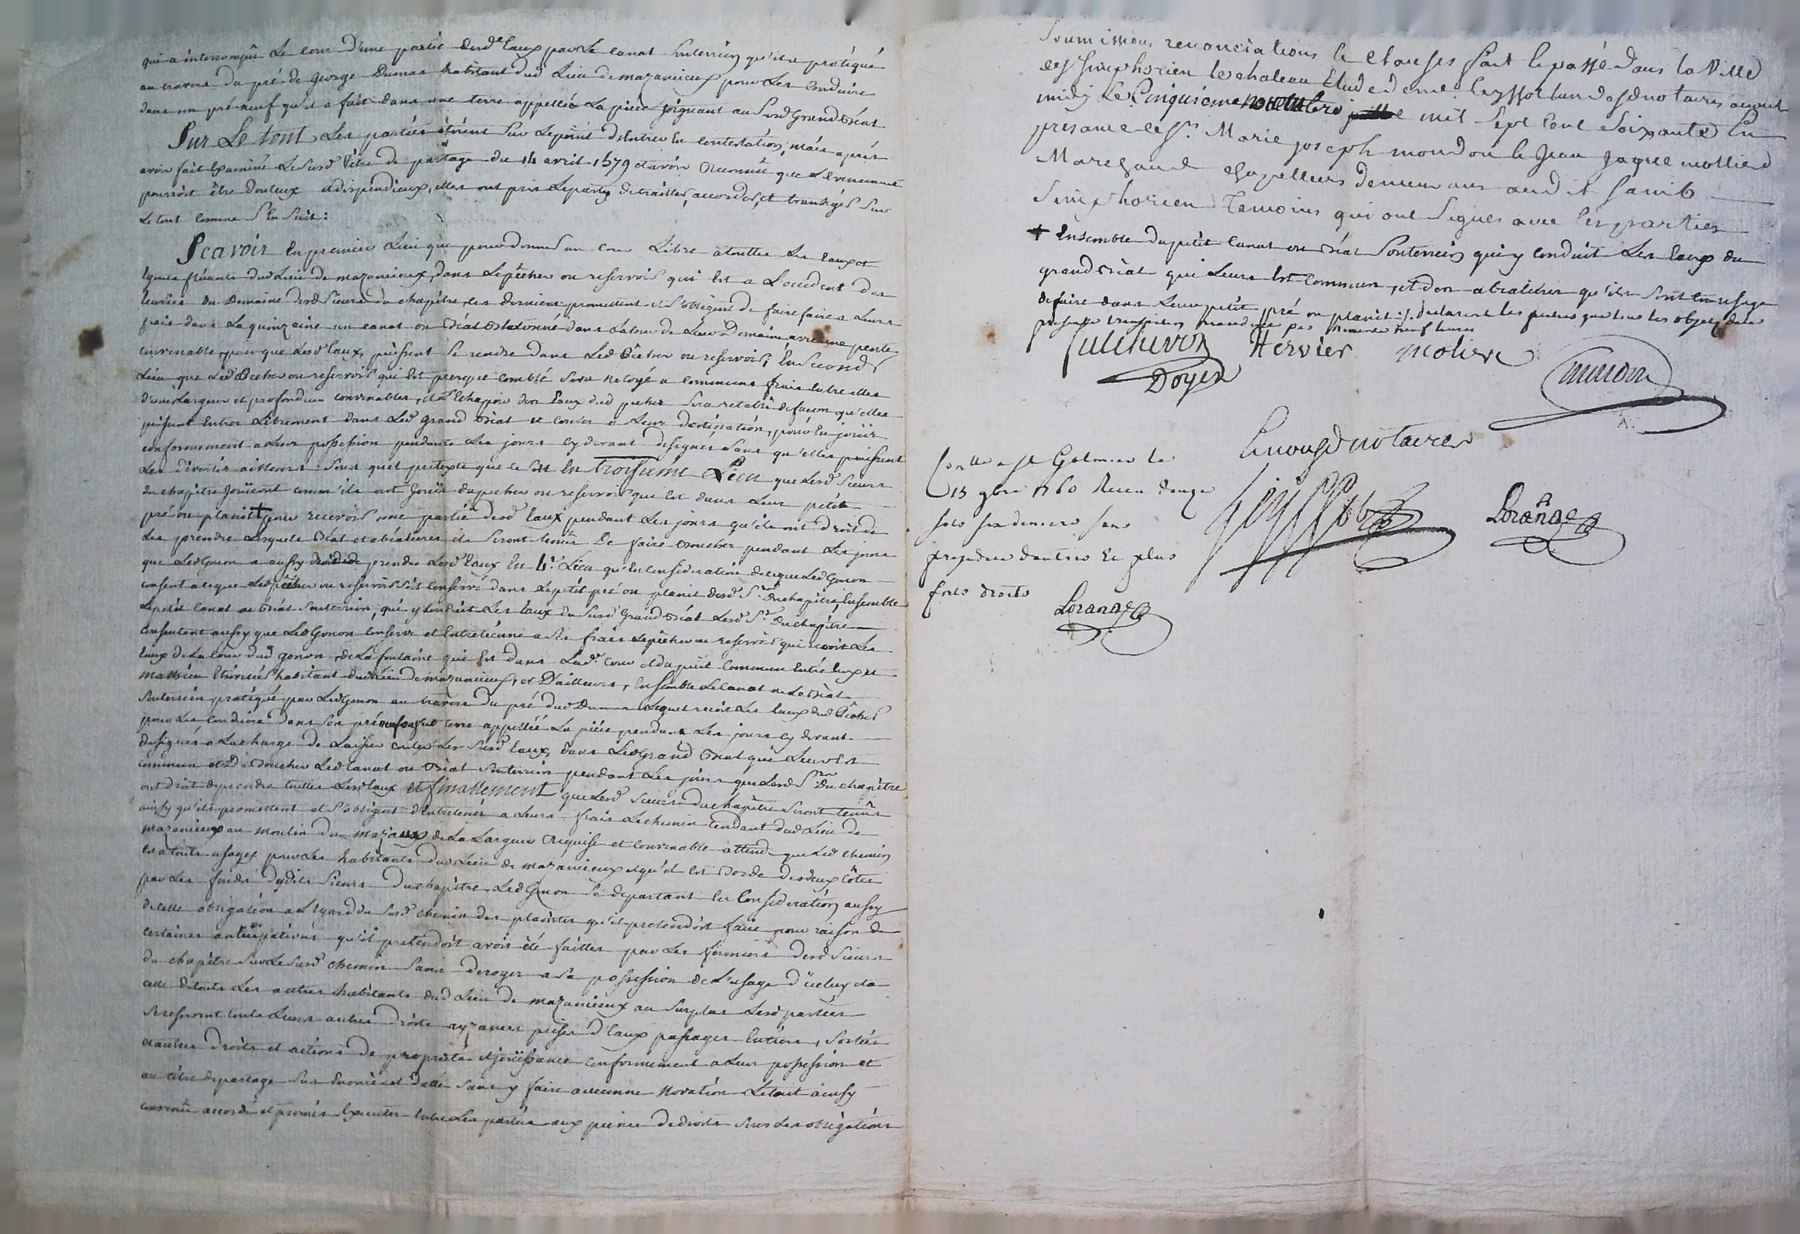 qui a interrompû Le cour d'une partie desd.e Eaux par Le canal souterrein qu'il a pratiqué
au travers du pré de George Dumas habitant dud. Lieu de mazanieux pour Les conduire
dans un pré neuf qu'il a fait dans une terre appellée La piece joignant au susd. Grand Béat
Sur Le tout Les parties étoient sur Le point d'entrer En contestation, mais après
avoir fait Examiner Le susd. titre de partage du 14 avril 1579 et avoir reconnû que L'evenement
pourroit être douteux et dispendieux, elles ont pris Le party de traitter, accorder, et transiger sur
Le tout comme s'En suit :
Scavoir En premier Lieu que pour donner un cour Libre a touttes Les Eaux et
dud. Lieu de mazanieux, dans Le pêcher ou reservoir qui Est a L'occident des
du Domaine desd. Sieurs du chapitre, ces derniers promettent et s'obligent de faire faire a Leurs
frais dans La quinzaine un canal ou Béat dans La cour de Leur Domaine avec une pente
convenable, pour que Lesd. Eaux, puissent se rendre dans Led. pêcher ou reservoir, En second
Lieu que Led. pêcher ou reservoir qui Est presque comblé sera netoyé a communs frais Entre elles
d'une Largeur et profondeur convenables, et L'echapoir des Eaux dud. pecher sera retabli de facon qu'elles
puissent Entrer Librement dans Led. grand Béat et couler a Leur destination, pour En joüir
conformement a Leur possession pendant Les jours cy devant designés sans qu'elles puissent
Les divertir ailleurs sous quel pretexte que ce soit En troisieme Lieu que Lesd. Sieurs
du chapitre joüiront comm'ils ont joüi du pecher ou reservoir que Est dans Leur petit
pré ou planit + pour recevoir une partie desd. Eaux pendant Les jours qu'ils ont droit de
Les prendre Lesquels Béat et abéalures ils seront tenus de faire boucher pendant Les jours
que Led. Gonon a aussy droit de prendre Lesd. Eaux En 4.e Lieu qu'En consideration de ce que Led. Gonon
consent a ce que Led. pêcher ou reservoir soit conservé dans Le petit pré ou planit desd. S.rs du chapitre, Ensemble
Le petit canal ou Béat souterrein, qui y conduit Les Eaux du susd. Grand Béat Lesd. S.rs du chapitre
consentent aussy que Led. Gonon conserve et Entretienne a ses frais Le pêcher ou reservoir qui reçoit Les
Eaux de La cour dud. gonon, de La fontaine qui Est dans Lad. cour et du puit commun Entre Eux et
Mathieu habitant dud. Lieu de mazanieux, et D'ailleurs, Ensemble Le canal ou Le Béat
souterrein pratiqué par Led. Gonon au travers du pré dud. Dumas Lequel reçoit Les Eaux dud. Pêcher
pour Les conduire dans son pré neuf ou terre appellée La piéce pendant Les jours cy devant
designés a La charge de Laisser couler Les susd. Eaux, dans Led. Grand Béat qui Leur Est
commun et De boucher Led. canal ou Béat souterrein pendant Les jours que Lesd. S.rs Du chapitre
ont droit de prendre touttes Lesd. Eaux et finallement que Lesd. Sieurs du chapitre seront tenûs
ainsy qu'ils promettent et s'obligent d'Entretenir a Leurs frais Le chemin tendant dud. Lieu de
mazanieux au moulin du mazaux de La Largeur requise et convenable attendu que Led. chemin
Est a touts usages pour Les habitants dud. Lieu de mazanieux et qu'il est bordé des deux côtés
par Les fonds desdits Sieurs Du chapitre, Led. Gonon se departant En Consideration aussy
de cette obligation a L'Egard du susd. chemin des plaintes qu'il pretendoit faire pour raison de
certaines anticipations qu'il pretendoit avoir été faittes par Les fermiers desd. Sieurs
du chapitre sur Le susd. chemin sans deroger a sa possession de L'usage d'icelui et a
celle de touts Les autres habitants dud. Lieu de mazanieux au surplus Lesd. parties
se reservent touts Leurs autres droits ayzances prises d'Eaux passages Entrées, sorties
et autres droits et actions de proprieté et joüissance conformement a Leur possession et
au titre de partage sus Enoncé et datté sans y faire aucunne Novation Le tout ainsy
convenû accordé et promis Executer Entre Les parties aux peines de droits sous Les obligations
Soumissions renonciations et Clauses fait et passé dans la Ville
de S.t Simphorien le chateau Etude de me l'un desd. notaires avant
midy le Cinquieme novembre mil sept Cent Soixante En
presance de S.r Marie joseph mondon et Jean jaque mollied
Marchand Chapelliers demeurans audit Saint
Simphorien Temoins qui ont Signés avec les parties
+ Ensemble du petit Canal ou Béat souterrein qui y conduit Les Eaux du
grand Béat qui Leur Est commun, et des abéalures qu'ils sont En usage
de faire dans Leur petit pré ou planit ./. declarent les parties que tous les objets de la
presente transaction
Hervier Moliere
Doyen
Et nous d. notaires
Con.lle a S.t Galmier le
15 9bre 1760 Receu douze
sols six deniers sans
prejudice d'autres Et plus
forts droits
Lorange
Lorange